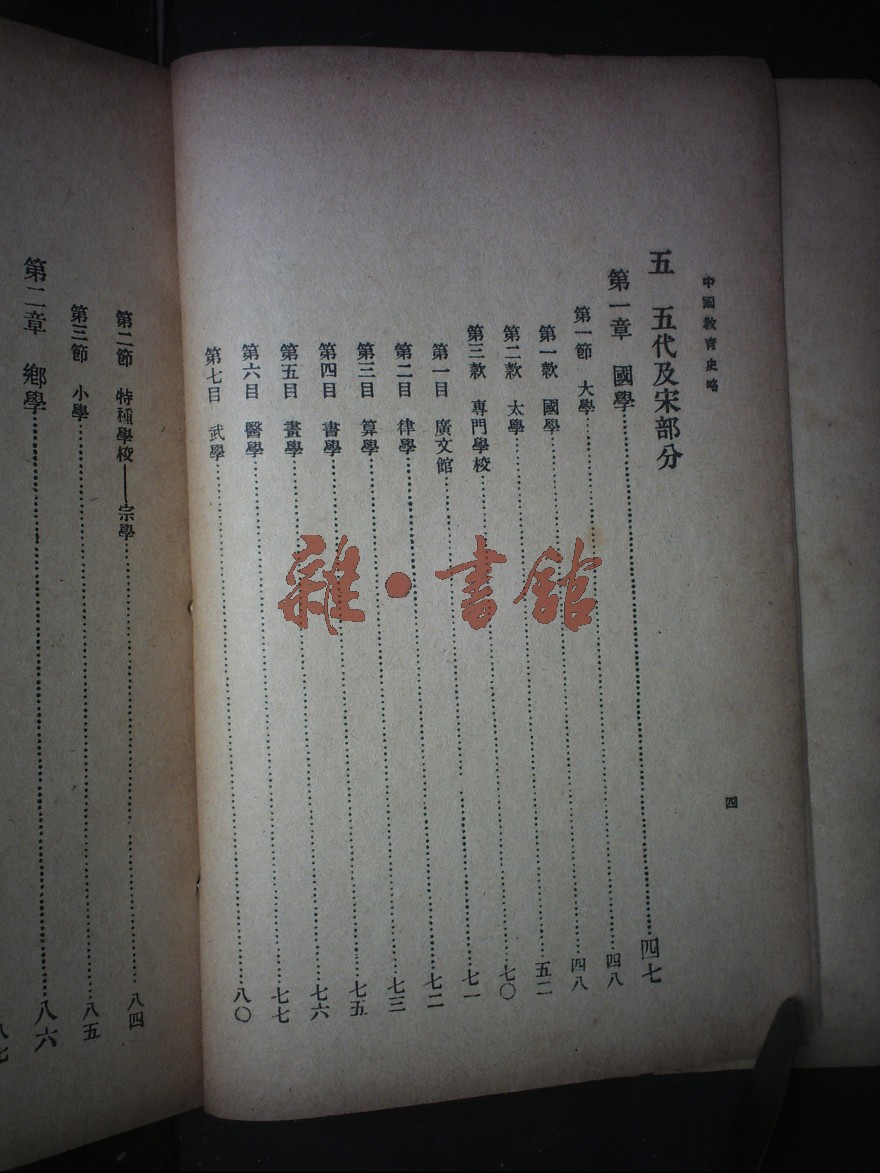 中國教育史略
四
五 五代及宋部分
第一章 國學……四七
第一節 大學……四八
第一款 國學……四八
第二款 太學……五二
第三款 專門學校……七〇
第一目 廣文館……七一
第二目 律學……七二
第三目 算學……七三
第四目 書學……七五
第五目 畫學……七六
第六目 醫學……七七
第七目 武學……八〇
第二節 特種學校——宗學……八四
第三節 小學……八五
第二章 鄉學……八六
雜·書館